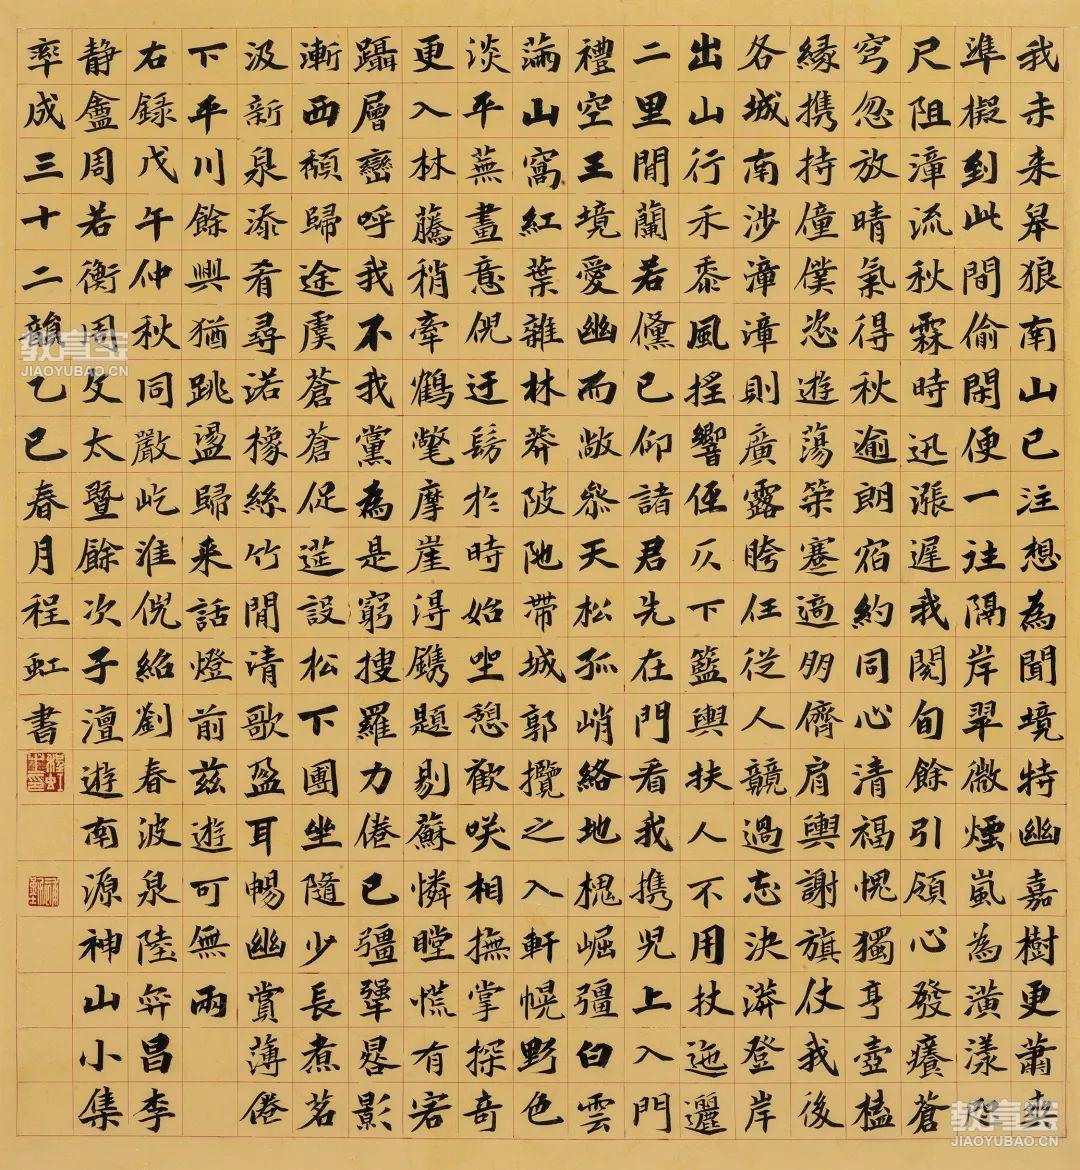 我未来皋狼南山已注想為聞境特幽嘉樹更蕭爽
準擬到此間偷閑便一往隔岸翠微煙嵐為潢漾
尺阻漳流秋霖時迅漲遲我閱旬餘引領心發癢蒼
穹忽放晴氣得秋逾朗宿約同心清福愧獨享壺榼
緣携持僮僕恣遊蕩築蹇適朋儕肩輿謝旗仗我後
各城南涉漳漳則廣露胯任從人競過忘決漭登岸
出山行禾黍風搖響伾仄下籃輿扶人不用扶迤邐
二里間蘭若儻已仰諸君先在門看我携兒上入門
禮空王境愛幽而敞參天松孤峭絡地槐崛彊白雲
滿山窩紅葉雜林莽陂阤帶城郭攬之入軒幌野色
淡平蕪畫意倪迂髣於時始坐憩歡咲相撫掌探奇
更入林藤稍牽鶴氅摩崖淂鐫題剔蘇憐瞠慌有宕
躡層巒呼我不我黨為是窮搜羅力倦已彊犟晷影
漸西頹歸途虞蒼蒼促筵設松下團坐隨少長煮茗
汲新泉添肴尋諾橡絲竹間清歌盈耳暢幽賞薄倦
下平川餘興猶跳盪歸来話燈前兹遊可無兩
右録戊午仲秋同嚴屹淮倪紹劉春波泉陸弈昌李
静盦周若衡周文太暨餘次子澶遊南源神山小集
率成三十二韻乙巳春月程虹書
教育宝
JIAOYUBAO.CN
教育宝
JIAOYUBAO.CN